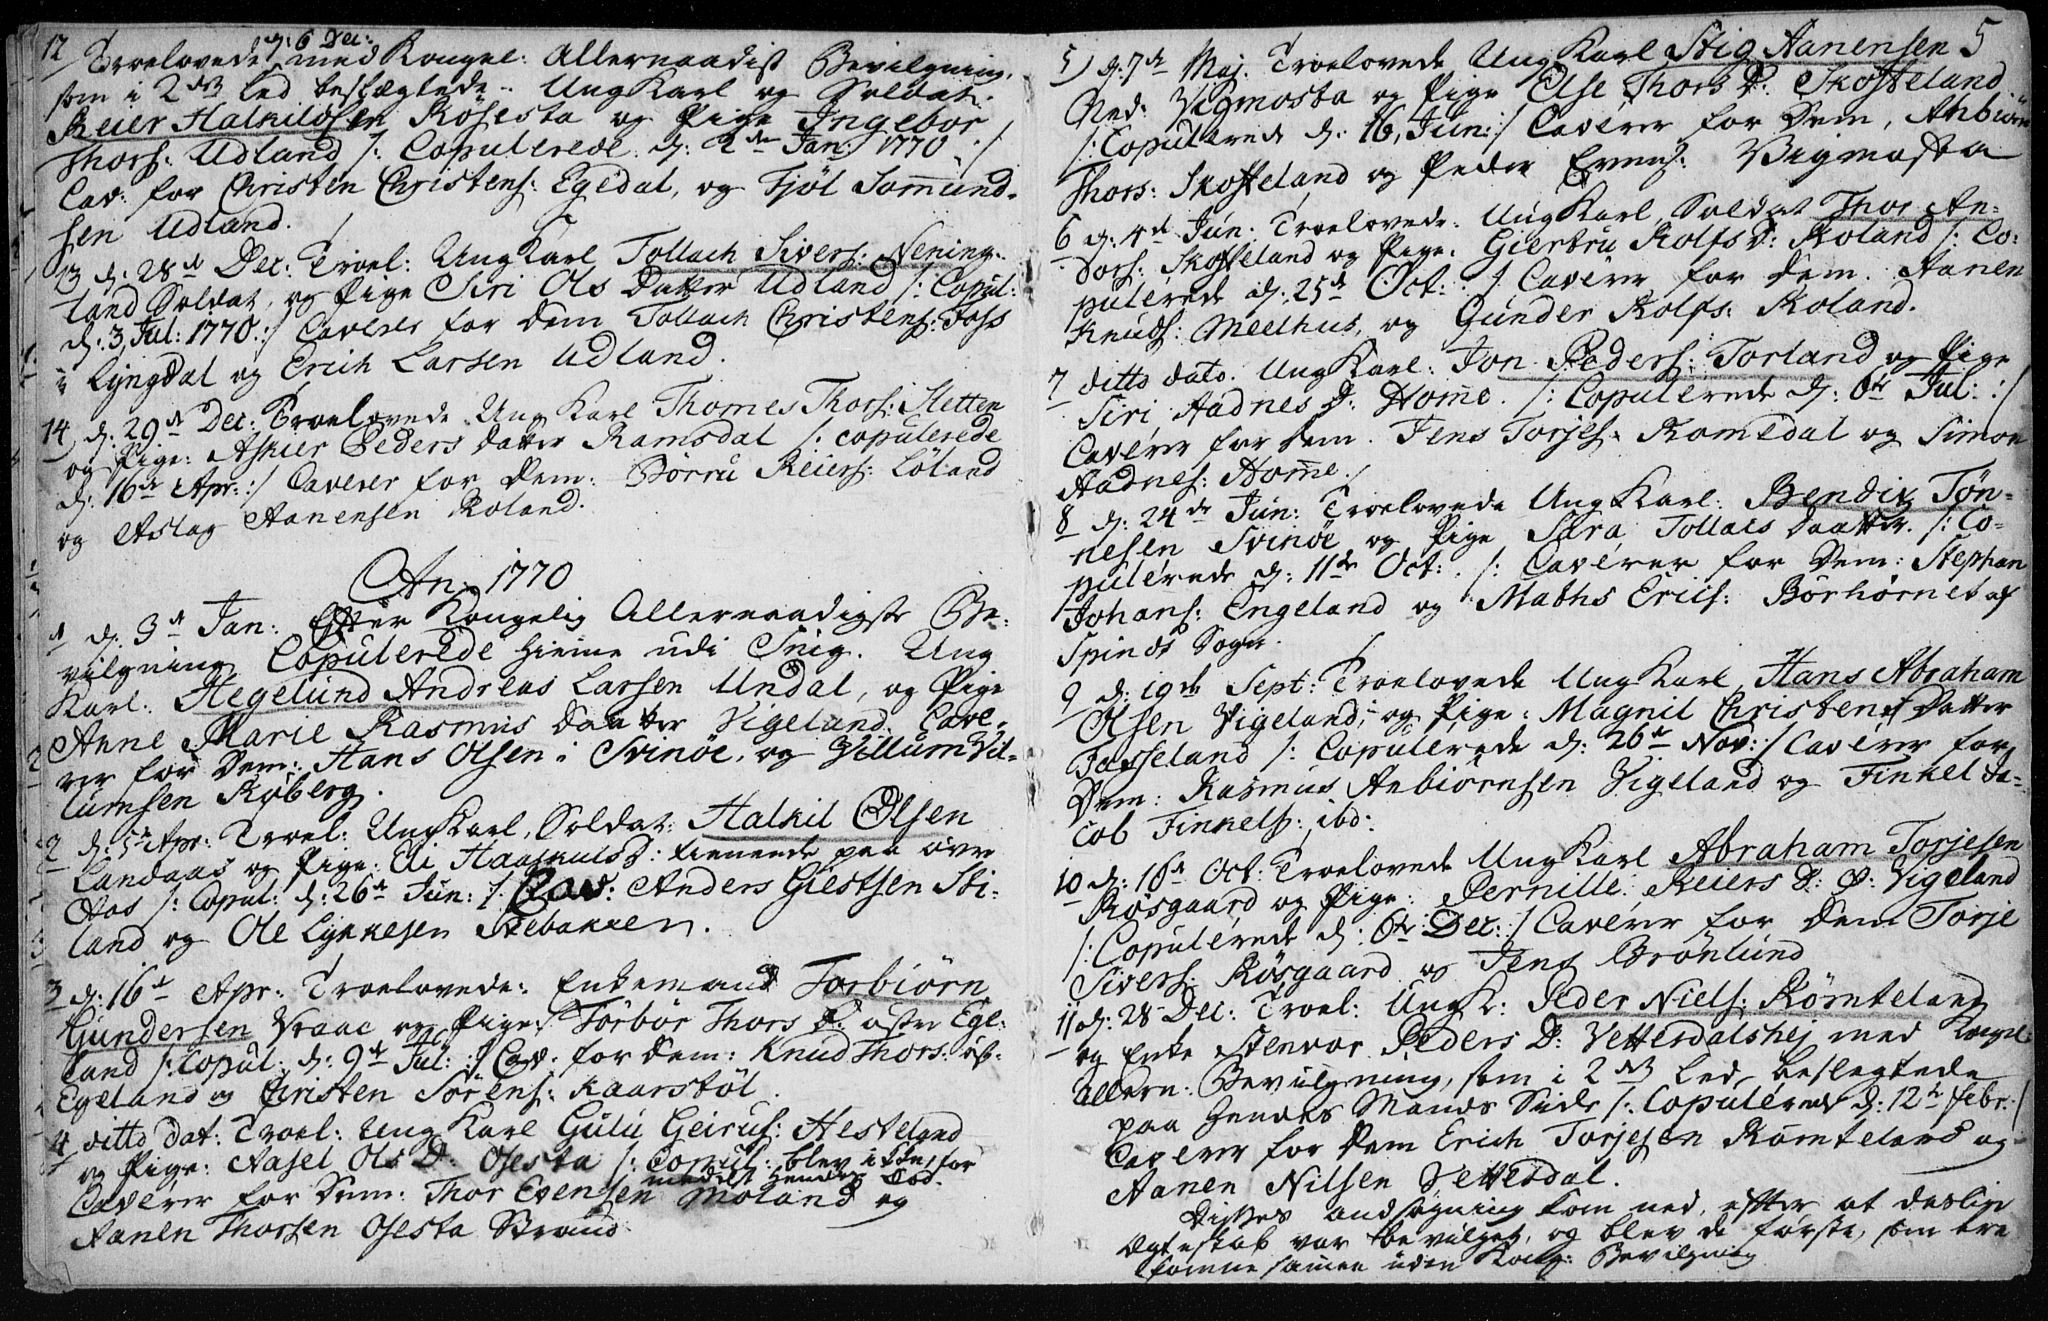 12 Troelovede d: 6 Dec: med Kongel: Allernaadist Bevilgning,
som i 2det Led beslæglede. Ung Karl og Soldat.
Reier Halkildsen Røsesta og Pige Ingebor
Thors: Udland /: Copulerede d: 2de Jan: 1770 :/
Cav: for Christen Christens: Egedal, og Fjøl Samund-
sen Udland.
13 d: 28de Dec: Troel: Ung Karl Tollach Sivers: Nening-
land Soldat, og Pige Siri Ols Datter Udland /: Copul:
d: 3 Jul: 1770 :/ Caverer for dem Tollach Christens: Foss
i Lyngdal og Erich Larsen Udland.
14 d: 29de Dec: Troelovede Ung Karl Thomes Thors: Sletten
og Pige: Askier Peders Datter Ramsdal /: copulerede
d: 16de Apr: :/ Caverer for Dem: Børru Reiers: Løland
og Aslag Aanensen Roland.
An: 1770
1 d: 3de Jan: Efter Kongelig Allernaadigste Be-
vilgning Copulerede hieme udi Snig. Ung
Karl: Hegelund Andreas Larsen Undal, og Pige
Anne Marie Rasmus Daatter Vigeland. Cave-
rer for Dem: Hans Olsen i Svinøe, og Villum Vil-
lumsen Røberg.
2 d: 5te Apr: Troel: Ung Karl, Soldat: Halkil Olsen
Landaas og Pige: Eli Haaskulsd: tienende paa øvre
Aas /: Copul: d: 26de Jun: /: Cav: Anders Giestsen Sti-
land og Ole Lykkesen Stebakken.
3 d: 16de Apr: Troelovede: Enkemand Torbiörn
Gundersen Vraae og Pige: Törbör Thors D: østre Ege-
land /: Copul: d: 9de Jul: :/ Cav: for dem: Knud Thors: øst:
Egeland og Christen Sörens: Kaarstöl.
4 ditto dat: Troel: Ung Karl Gülu Geirus: Hesteland
og Pige: Aasel Ols D: Osesta /: Copul: blev intet, for
medelst hendes Død.
Caverer for Dem: Thor Evensen Moland og
Aanen Thorsen Osesta Strand

5
5) d: 7de Maj. Troelovede Ung Karl Stig Aanensen
Ned: Vigmosta og Pige Else Thors D: Skofteland
/: Copulerede d: 16, Jun: :/ Caverer for Dem, Anbiörn
Thors: Skofteland og Peder Evens: Vigmosta
6 d: 4de Jun: Troelovede: Ung Karl, Soldat Thor An-
dors: Skofteland og Pige: Giertru Rolfs D: Roland /: Co-
pulerede d: 25de Oct: :/ Caverer for Dem. Aanen
Knuds: Meelhus, og Gunder Rolfs: Roland.
7 ditto dato. Ung Karl: Jon Peders: Torland og Pige
Siri Aadnes D: Home. /: Copulerede d: 6te Jul: :/
Caverer for Dem. Jens Torjes: Romedal og Simon
Aadnes: Home.
8 d: 24de Jun: Troelovede Ung Karl: Bendix Tön-
nesen Svinöe og Pige Sara Tollacs Daatter. /: Co-
pulerede d: 11te Oct: /: Caverer for Dem: Stephan
Johans: Engeland og Maths Erics: Börhörnet af
Spinds Sogn.
9 d: 19de Sept: Troelovede Ung Karl Hans Abraham
Olsen Vigeland, og Pige: Magnil Christens Datter
Fasseland /: Copulerede d: 26de Nov: :/ Caverer for
Dem: Rasmus Anbiörnsen Vigeland og Finkel Ja-
cob Finkels: ibd:
10 d: 16de Oct: Troelovede Ung Karl Abraham Torjesen
Røsgaard og Pige: Pernille Reiers D: Ø: Vigeland
/: Copulerede d: 6te Dec: :/ Caverer for Dem Torje
Sivers: Røsgaard og Jens Brönlund
11 d: 28 Dec: Troel: Ung K: Peder Niels: Rømteland
og Enke Stenvor Peders D: Vetterdalshej med Kongel:
Allern: Bevilgning, som i 2det Led beslegtede
paa hendes Mands Side /: Copulered d: 12te Febr: :/
Caverer for Dem Erich Torjesen Rømteland og
Aanen Nilsen Vetterdal.
Disses ansøgning kom ned, efter at deslige
Ægteskab var bevilget, og blev de første, som ere
komne samen uden Kong: Bevilgning